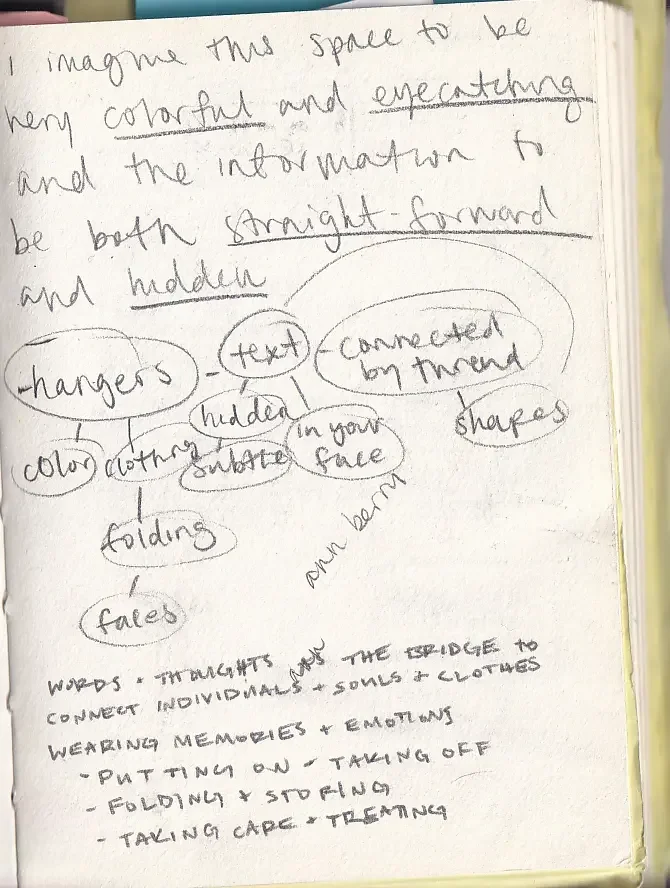 I imagine this space to be
very colorful and eyecatching
and the information to
be both straight-forward
and hidden
-hangers - text - connected
by thread
color clothing hidden subtle in your
face shapes
folding
faces
ann berry
WORDS + THOUGHTS AS THE BRIDGE TO
CONNECT INDIVIDUALS + SOULS + CLOTHES
WEARING MEMORIES + EMOTIONS
- PUTTING ON - TAKING OFF
- FOLDING + STORING
- TAKING CARE + TREATING